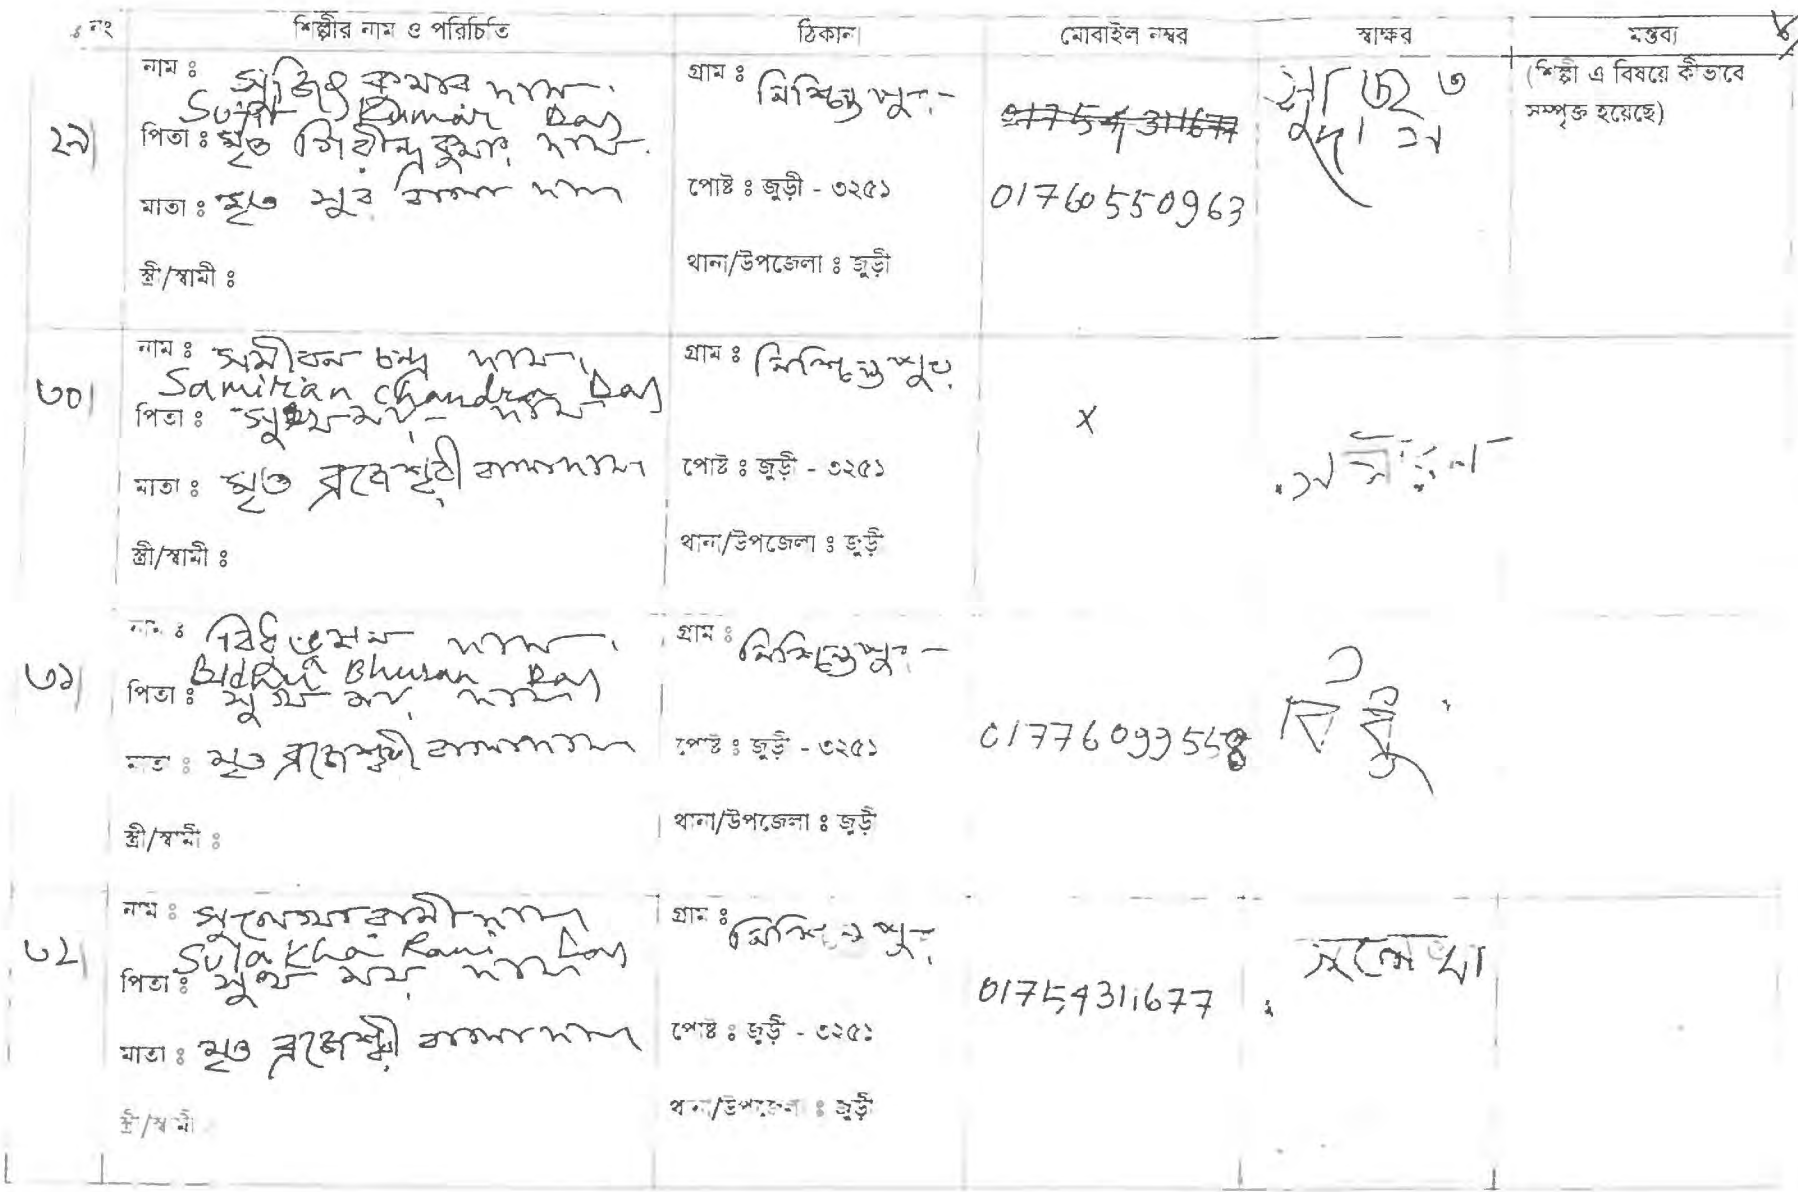 নং শিল্পীর নাম ও পরিচিতি ঠিকানা মোবাইল নম্বর স্বাক্ষর মন্তব্য
২৯| নাম ঃ সুজিৎ কুমার দাস
Sujit Kumar Das
পিতা ঃ মৃত গিরীন্দ্র কুমার দাস
মাতা ঃ মৃত সুর বালা দাস
স্ত্রী/স্বামী ঃ
গ্রাম ঃ নিশ্চিন্তপুর
পোষ্ট ঃ জুড়ী - ৩২৫১
থানা/উপজেলা ঃ জুড়ী
01754311677
01760550963
(শিল্পী এ বিষয়ে কীভাবে
সম্পৃক্ত হয়েছে)
৩০| নাম ঃ সমীরন চন্দ্র দাস
Samiran Chandra Das
পিতা ঃ সুখময় দাস
মাতা ঃ মৃত ব্রজেশ্বরী বালা দাস
স্ত্রী/স্বামী ঃ
গ্রাম ঃ নিশ্চিন্তপুর
পোষ্ট ঃ জুড়ী - ৩২৫১
থানা/উপজেলা ঃ জুড়ী
x
৩১| নাম ঃ বিধু ভূষন দাস
Bidhu Bhusan Das
পিতা ঃ সুখ ময় দাস
মাতা ঃ মৃত ব্রজেশ্বরী বালা দাস
স্ত্রী/স্বামী ঃ
গ্রাম ঃ নিশ্চিন্তপুর
পোষ্ট ঃ জুড়ী - ৩২৫১
থানা/উপজেলা ঃ জুড়ী
01776099558
বিধু
৩২| নাম ঃ সুলেখা রানী দাস
Sulakha Rani Das
পিতা ঃ সুখ ময় দাস
মাতা ঃ মৃত ব্রজেশ্বরী বালা দাস
স্ত্রী/স্বামী
গ্রাম ঃ নিশ্চিন্তপুর
পোষ্ট ঃ জুড়ী - ৩২৫১
থানা/উপজেলা ঃ জুড়ী
01754311677
সুলেখা